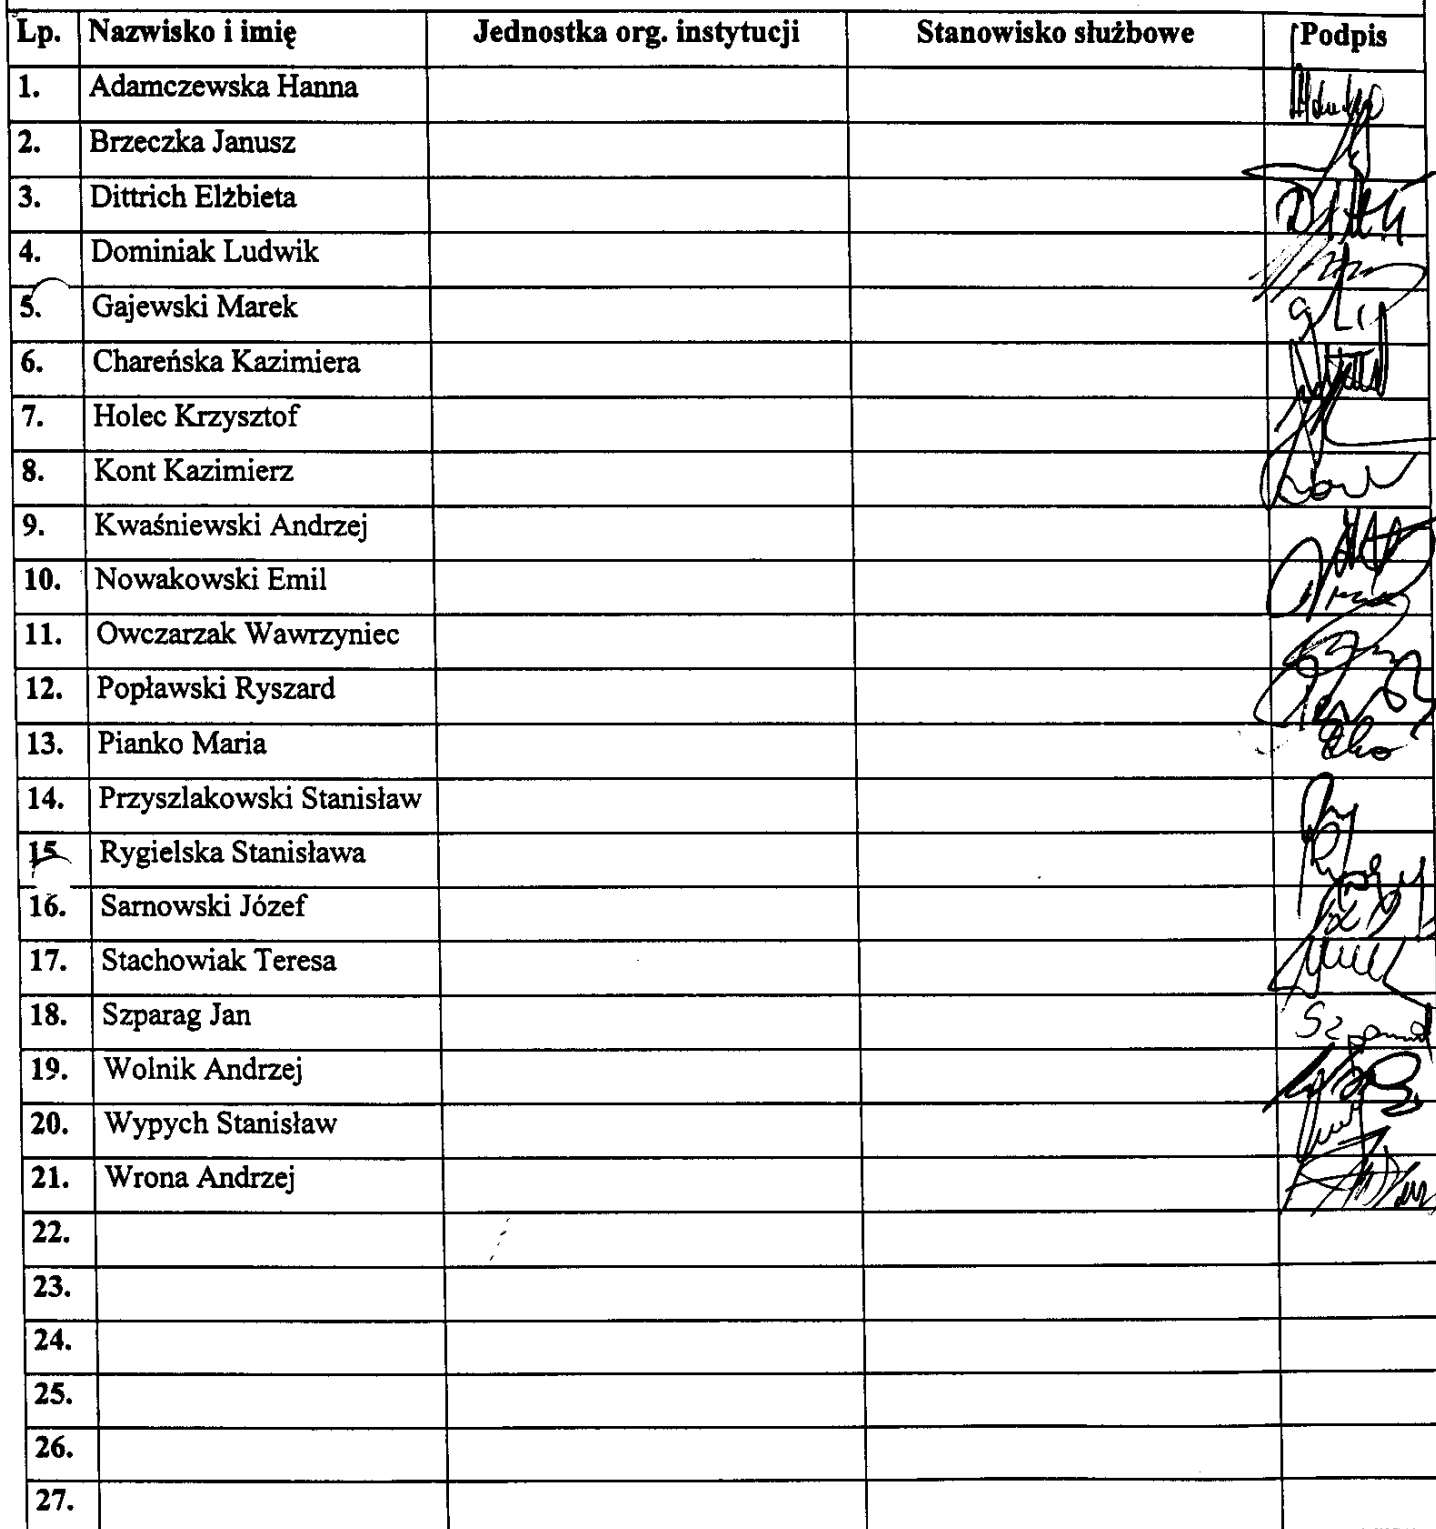 Lp. Nazwisko i imię Jednostka org. instytucji Stanowisko służbowe Podpis
1. Adamczewska Hanna
2. Brzeczka Janusz
3. Dittrich Elżbieta
4. Dominiak Ludwik
5. Gajewski Marek
6. Chareńska Kazimiera
7. Holec Krzysztof
8. Kont Kazimierz
9. Kwaśniewski Andrzej
10. Nowakowski Emil
11. Owczarzak Wawrzyniec
12. Popławski Ryszard
13. Pianko Maria
14. Przyszlakowski Stanisław
15. Rygielska Stanisława
16. Sarnowski Józef
17. Stachowiak Teresa
18. Szparag Jan
19. Wolnik Andrzej
20. Wypych Stanisław
21. Wrona Andrzej
22.
23.
24.
25.
26.
27.